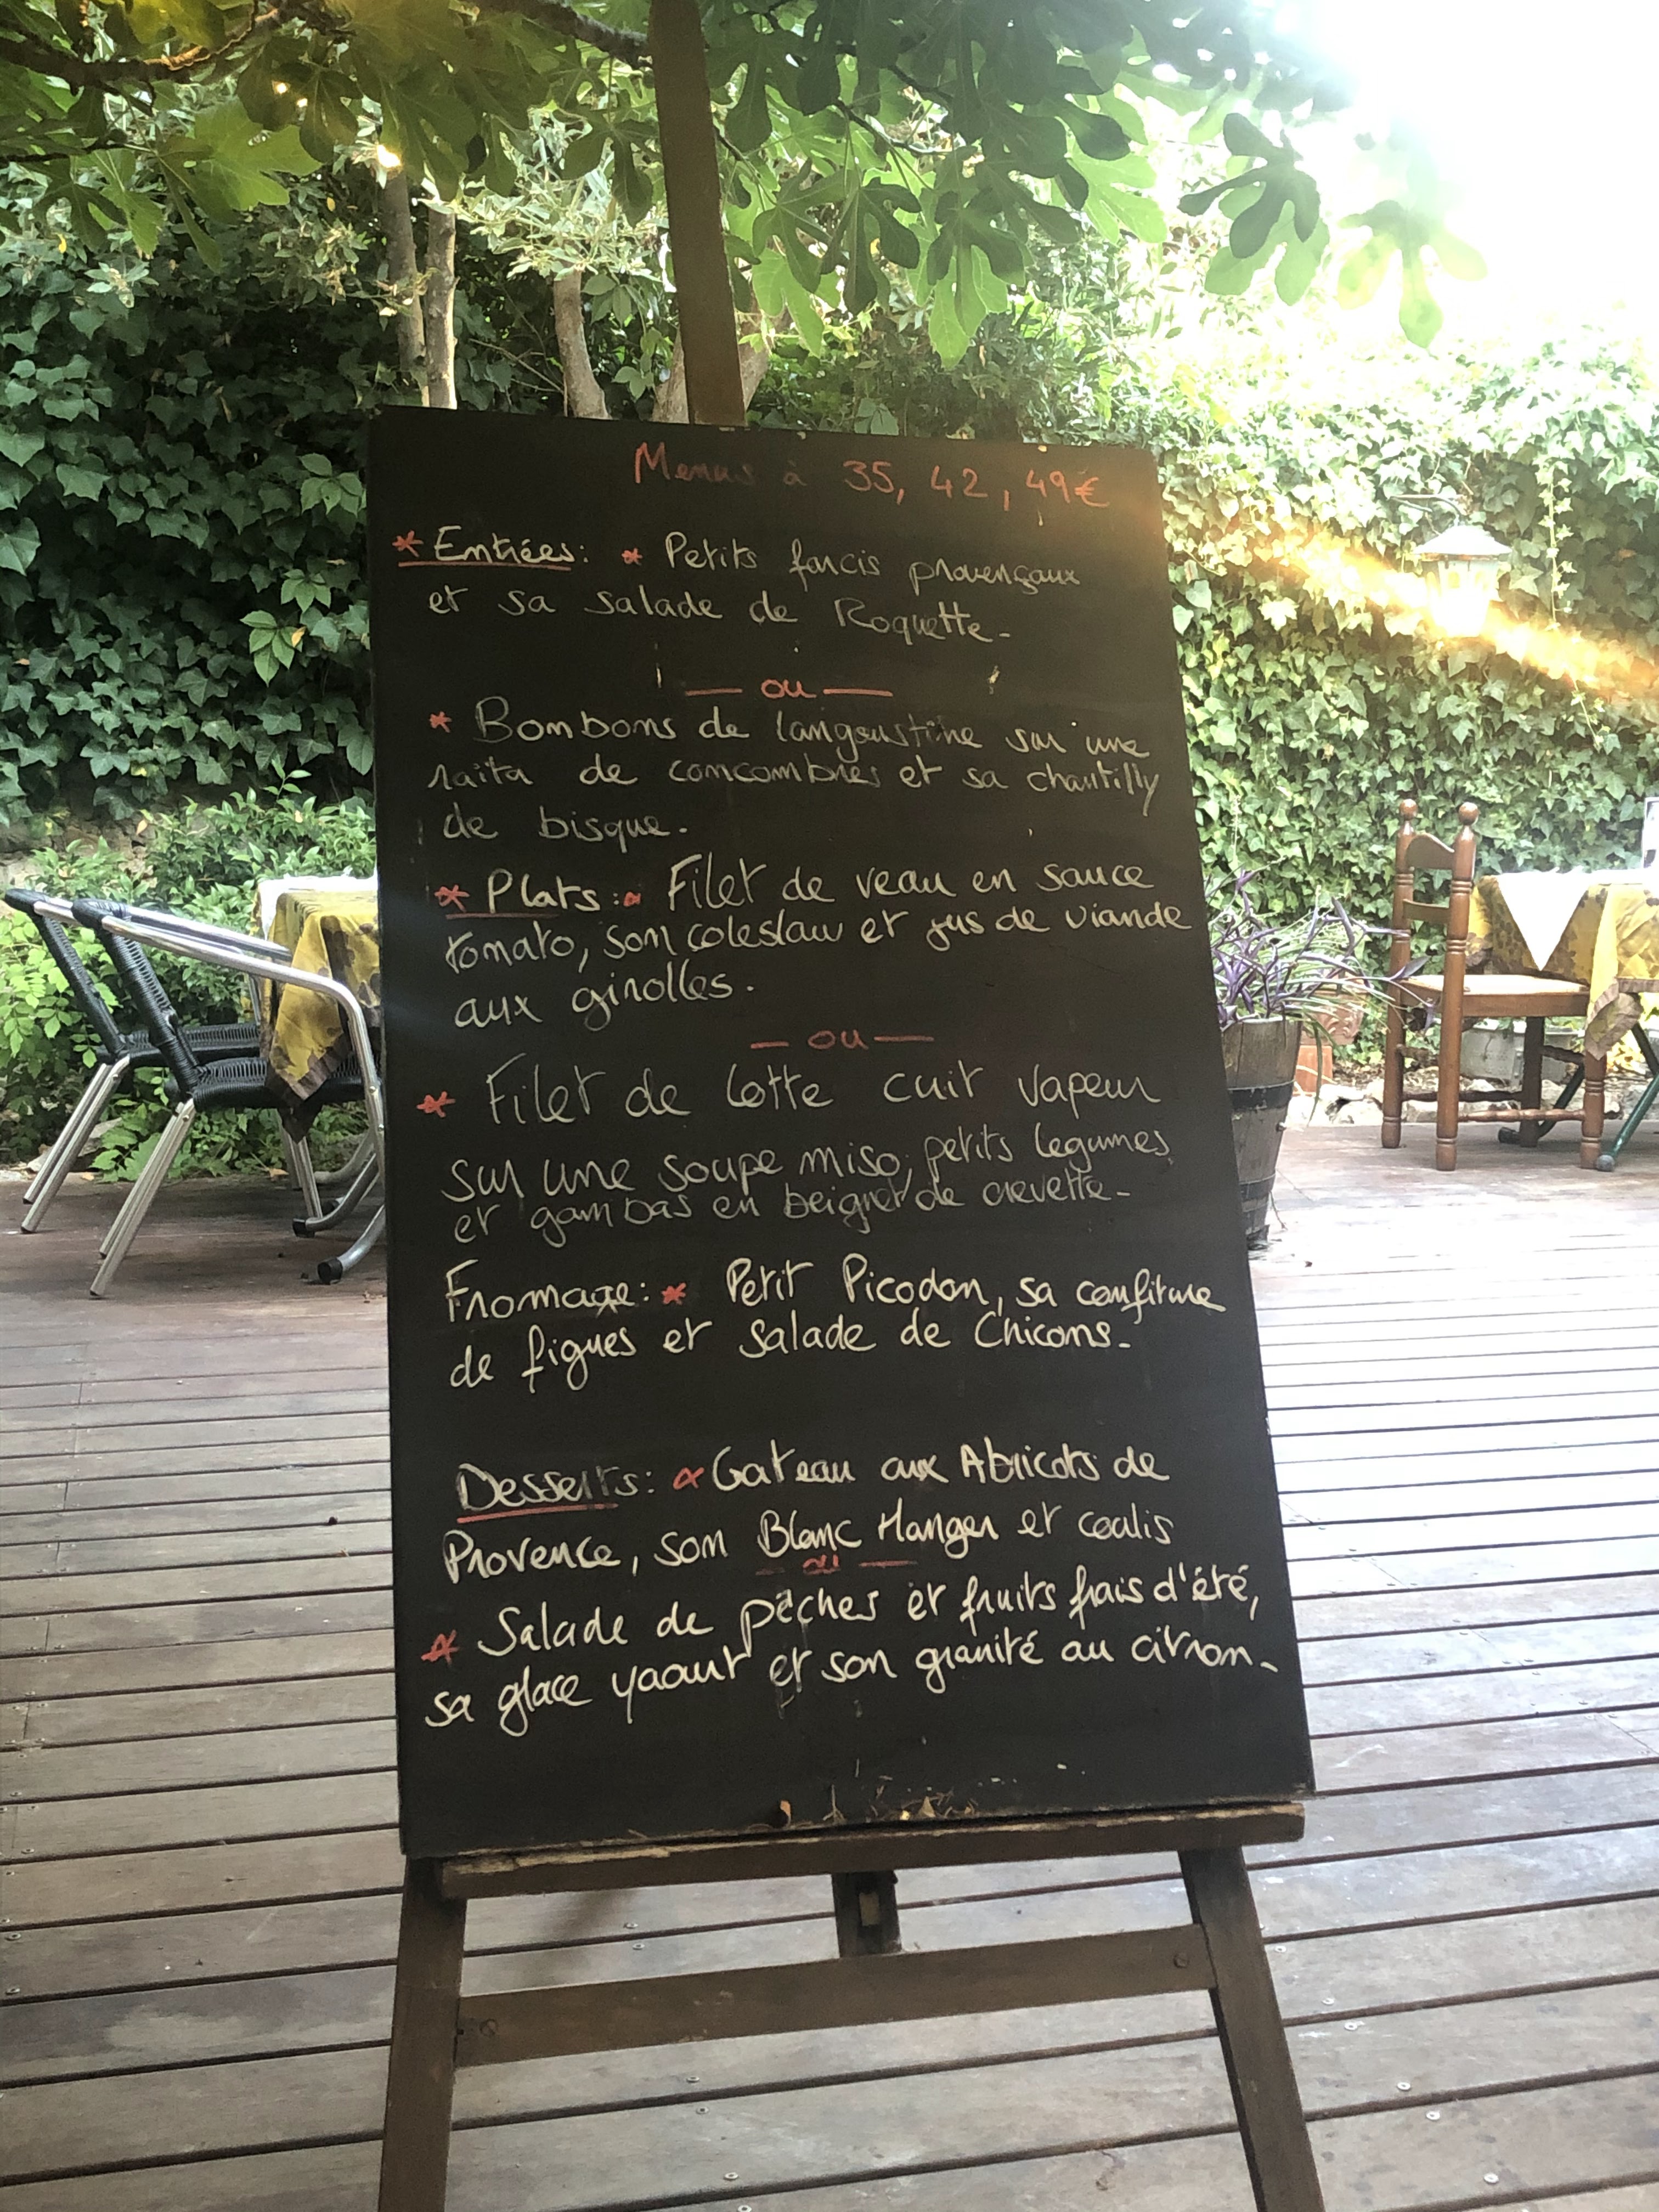 Menus à 35, 42, 49€
* Entrées: * Petits farcis provençaux
et sa salade de Roquette-
— ou —
* Bombons de langoustine sur une
raïta de concombres et sa chantilly
de bisque.
* Plats: * Filet de veau en sauce
tomato, son coleslaw et jus de viande
aux girolles.
— ou —
* Filet de lotte cuit vapeur
sur une soupe miso, petits legumes
et gambas en beignet de crevette-
Fromage: * Petit Picodon, sa confiture
de figues et Salade de Chicons-
Desserts: * Gateau aux Abricots de
Provence, son Blanc Manger et coulis
— ou —
* Salade de pêches et fruits frais d'été,
sa glace yaourt et son granité au citron-